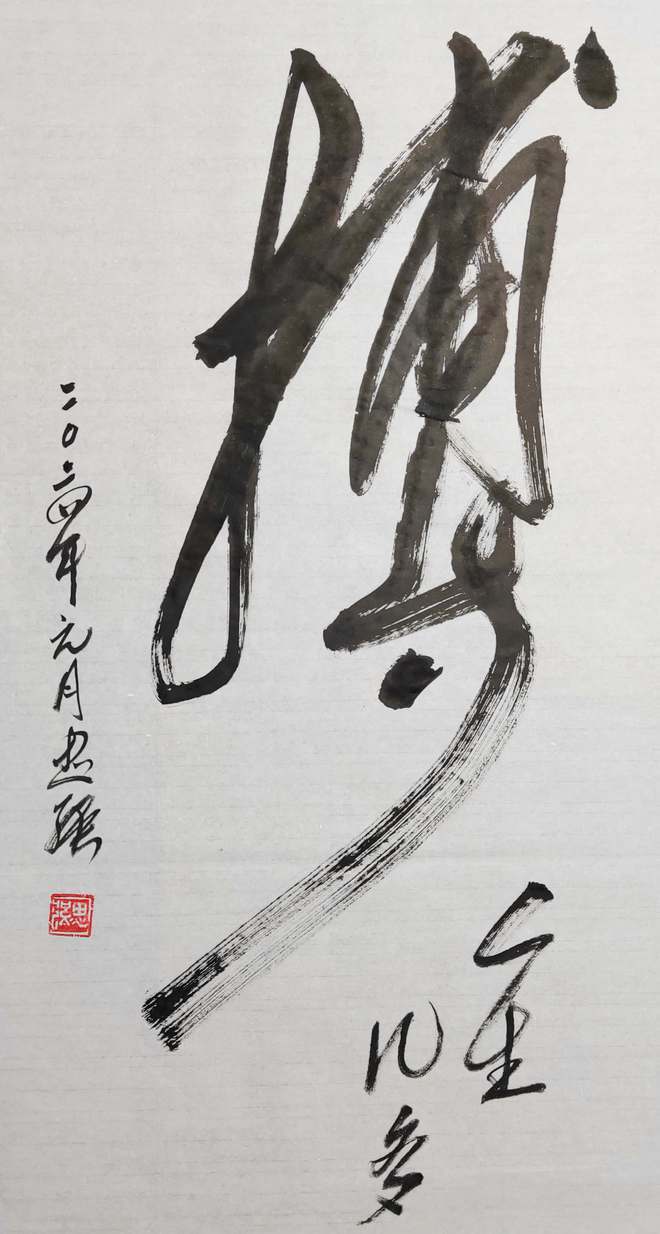 搏
人生
几多
二〇二四年元月思强